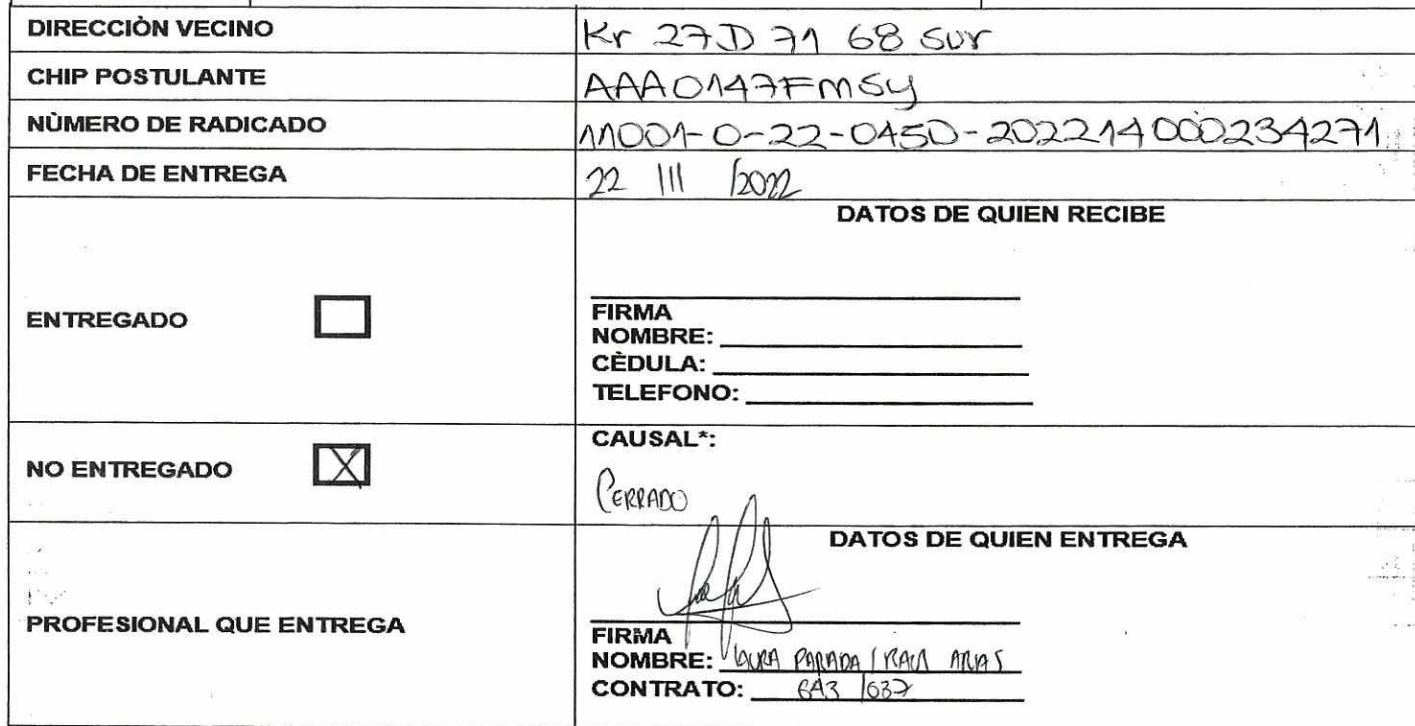 DIRECCIÒN VECINO
Kr 27D 71 68 sur
CHIP POSTULANTE
AAA0147FMSY
NÙMERO DE RADICADO
11001-0-22-0450-202214000234271
FECHA DE ENTREGA
22 III /2022
DATOS DE QUIEN RECIBE
ENTREGADO
FIRMA
NOMBRE:
CÈDULA:
TELEFONO:
NO ENTREGADO X
CAUSAL*:
CERRADO
DATOS DE QUIEN ENTREGA
PROFESIONAL QUE ENTREGA
FIRMA
NOMBRE: LAURA PARADA / ARIAS
CONTRATO: 643 /637